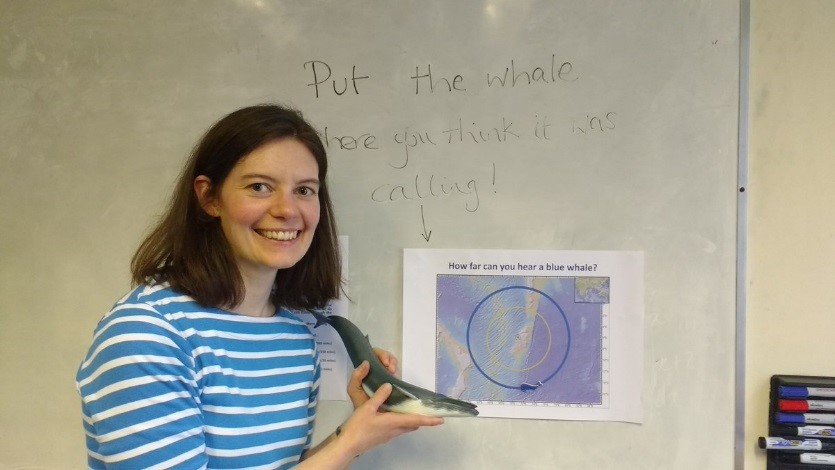 Put the whale
you think it was
calling!
How far can you hear a blue whale?